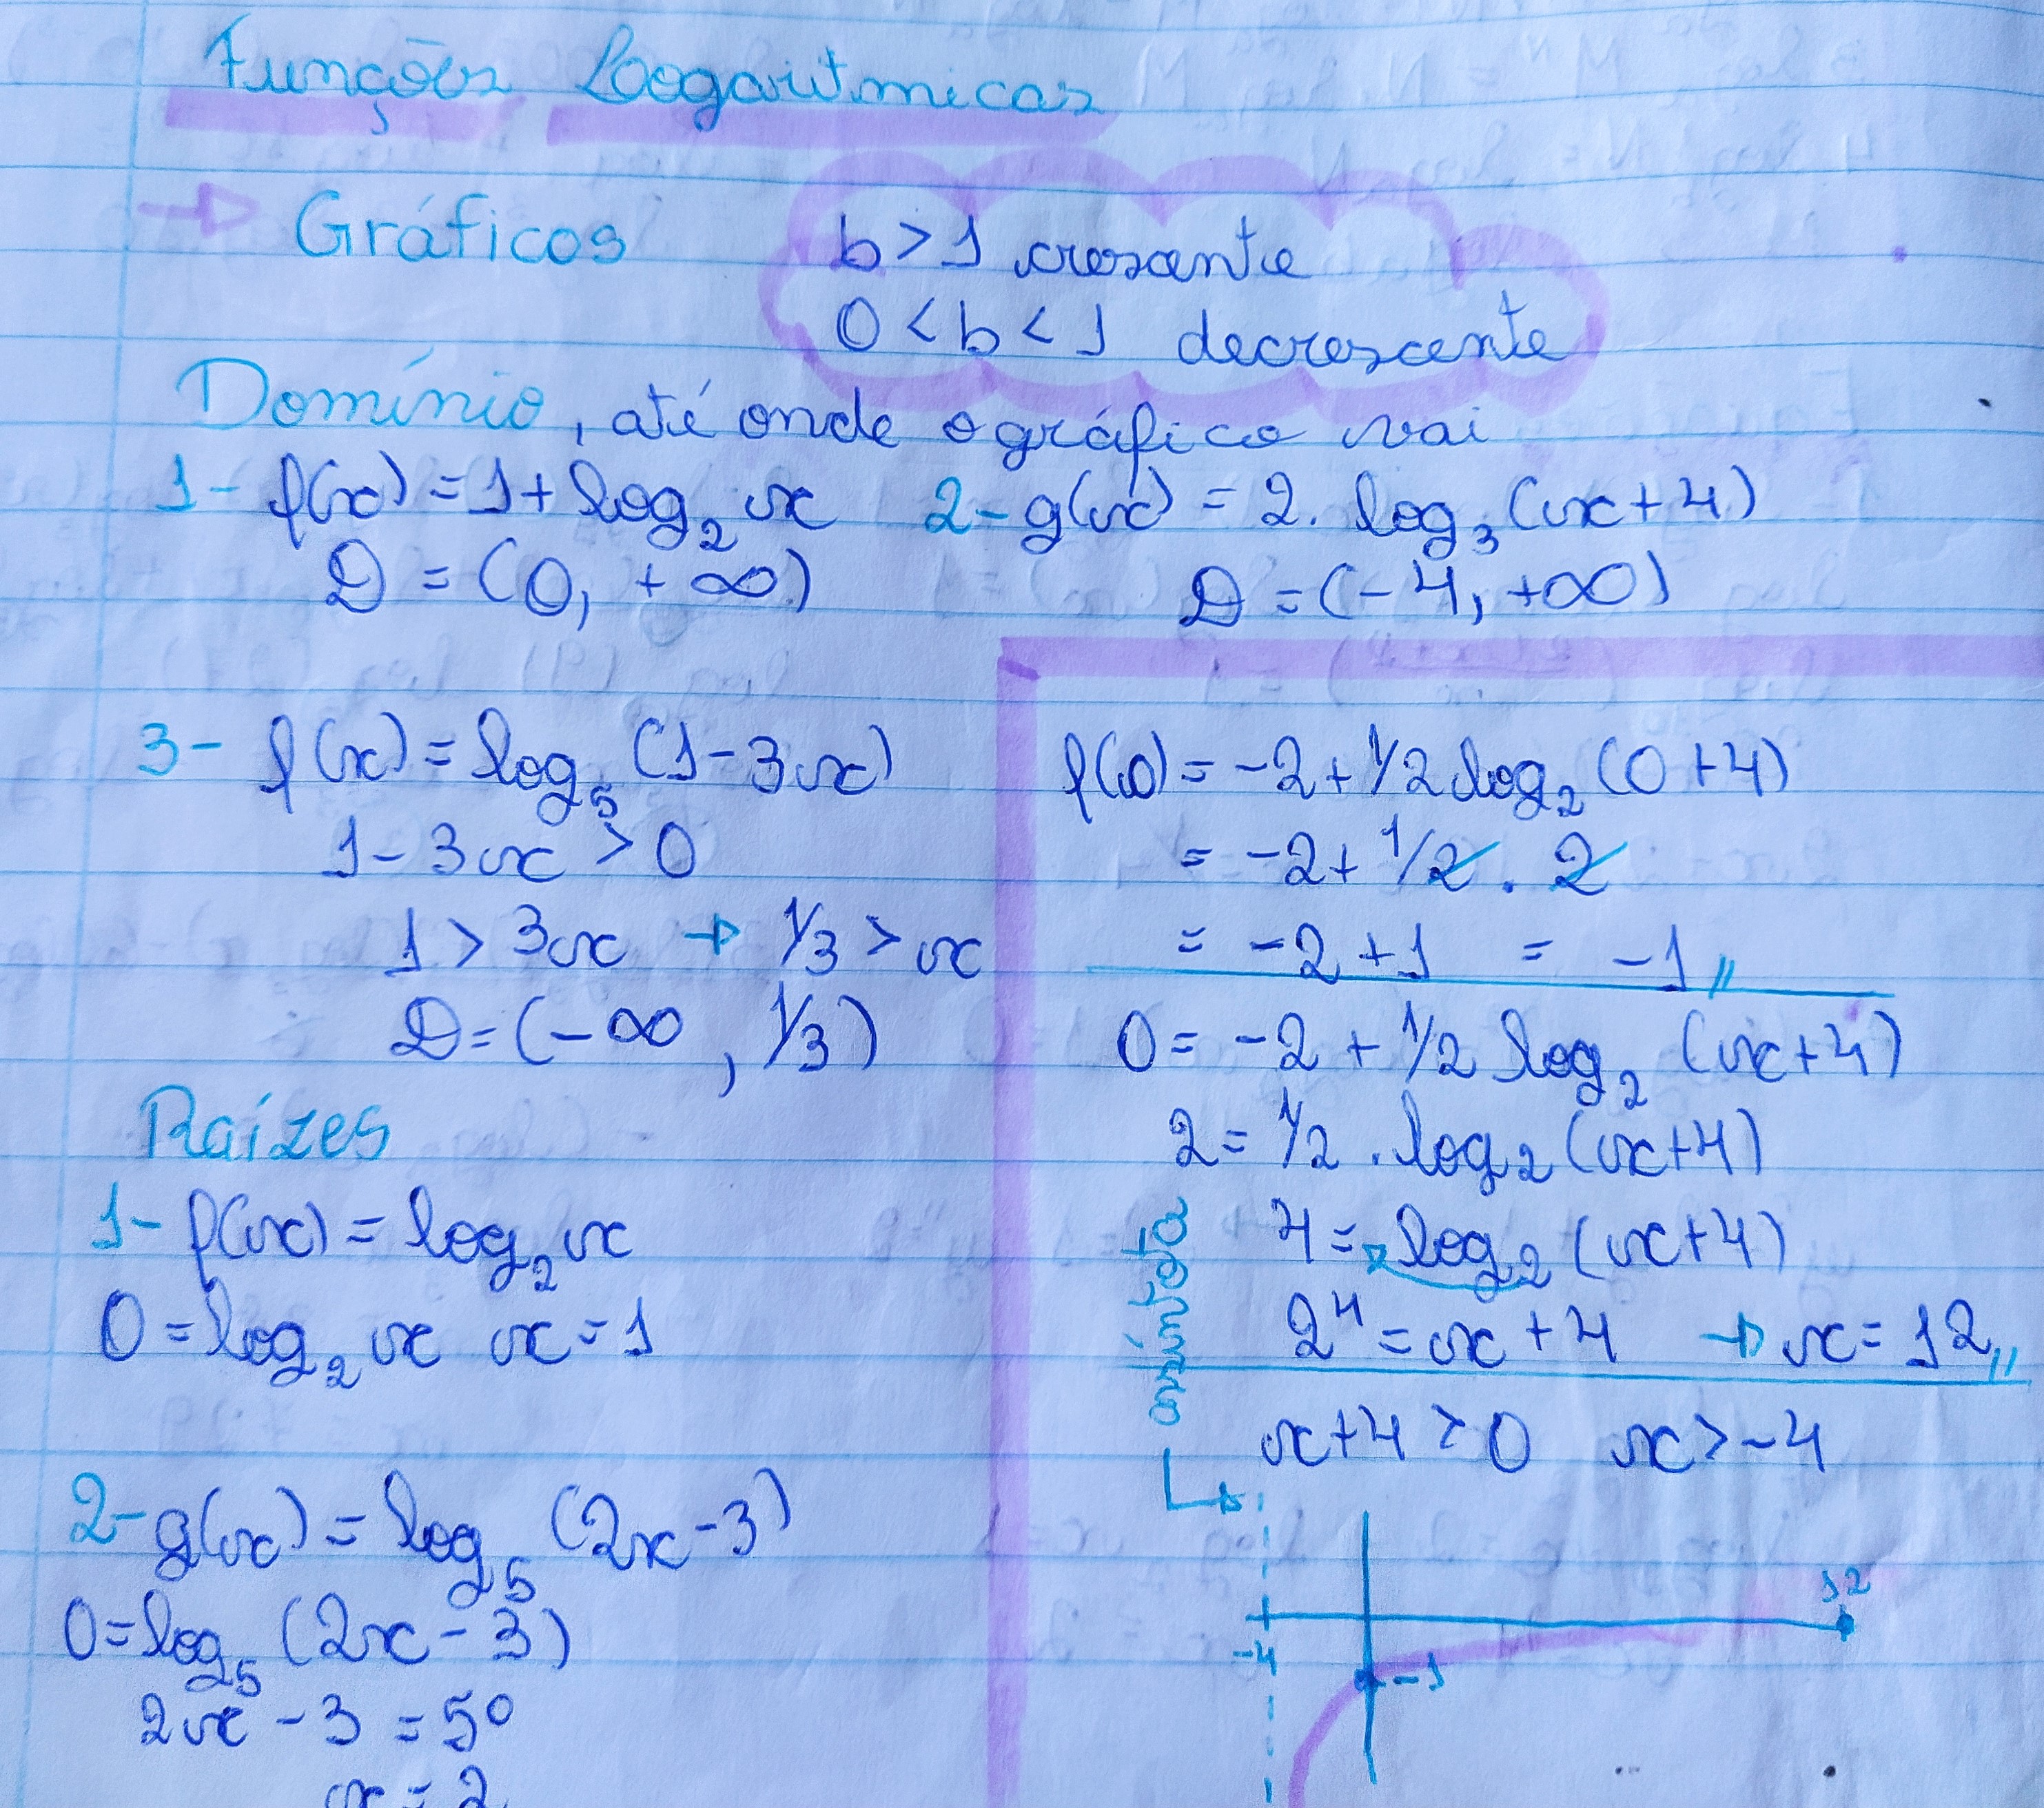 Funções Logarítmicas
→ Gráficos
b > 1 crescente
0 < b < 1 decrescente
Domínio, até onde o gráfico vai
1- f(x) = 1 + log₂ x
D = (0, +∞)
2- g(x) = 2. log₃ (x+4)
D = (-4, +∞)
3- f(x) = log₅ (1-3x)
1-3x > 0
1 > 3x → 1/3 > x
D = (-∞, 1/3)
Raízes
1- f(x) = log₂ x
0 = log₂ x x = 1
2- g(x) = log₅ (2x-3)
0 = log₅ (2x-3)
2x - 3 = 5⁰
x = 2
f(0) = -2 + 1/2 log₂ (0+4)
= -2 + 1/2 . 2
= -2 + 1 = -1 //
0 = -2 + 1/2 log₂ (x+4)
2 = 1/2 . log₂ (x+4)
4 = log₂ (x+4)
2⁴ = x + 4 → x = 12 //
x+4 > 0 x > -4
assíntota
12
-4
-1